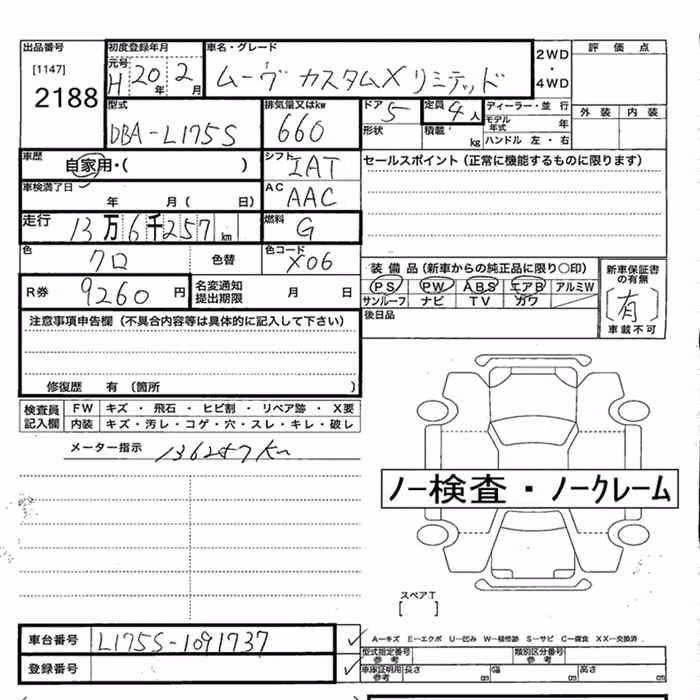 出品番号
[1147]
2188
初度登録年月
元号 H 20年 2月
車名・グレード
ムーヴ カスタムX リミテッド
2WD
・
4WD
評価点
外装 内装
型式
DBA-L175S
排気量又はkw
660
ドア 5
形状
定員 4人
積載 kg
ディーラー・並行
モデル年式 年
ハンドル 左・右
車歴
自家用・( )
シフト
IAT
セールスポイント (正常に機能するものに限ります)
車検満了日
年 月( 日)
AC
AAC
走行
13万6千257km
燃料
G
色
クロ
色替
色コード
X06
装備品 (新車からの純正品に限り○印)
PS PW ABS エアB アルミW
サンルーフ ナビ TV カワ
新車保証書の有無
[有]
車載不可
R券
9260円
名変通知
提出期限
月 日
後日品
注意事項申告欄 (不具合内容等は具体的に記入して下さい)
修復歴 有 (箇所 )
検査員記入欄
FW キズ ・ 飛石 ・ ヒビ割 ・ リペア跡 ・ X要
内装 キズ・汚レ・コゲ・穴・スレ・キレ・破レ
メーター指示 136257km
ノー検査・ノークレーム
スペアT
[ ]
車台番号
L175S-1091737
✓
A−キズ E−エクボ U−凹み W−補修跡 S−サビ C−腐食 XX−交換済
型式指定番号
参考
類別区分番号
参考
登録番号
✓
車庫証明用
参考
長さ cm
幅 cm
高さ cm